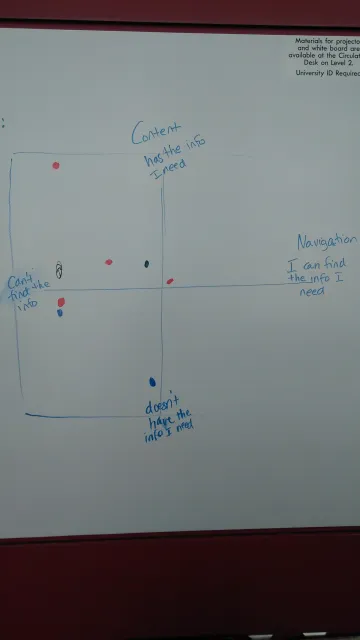 Materials for projecto
and white board are
available at the Circulat
Desk on Level 2.
University ID Required
:
Content
has the info
I need
Navigation
I can find
the info I
need
Can't
find the
info
doesn't
have the
info I need